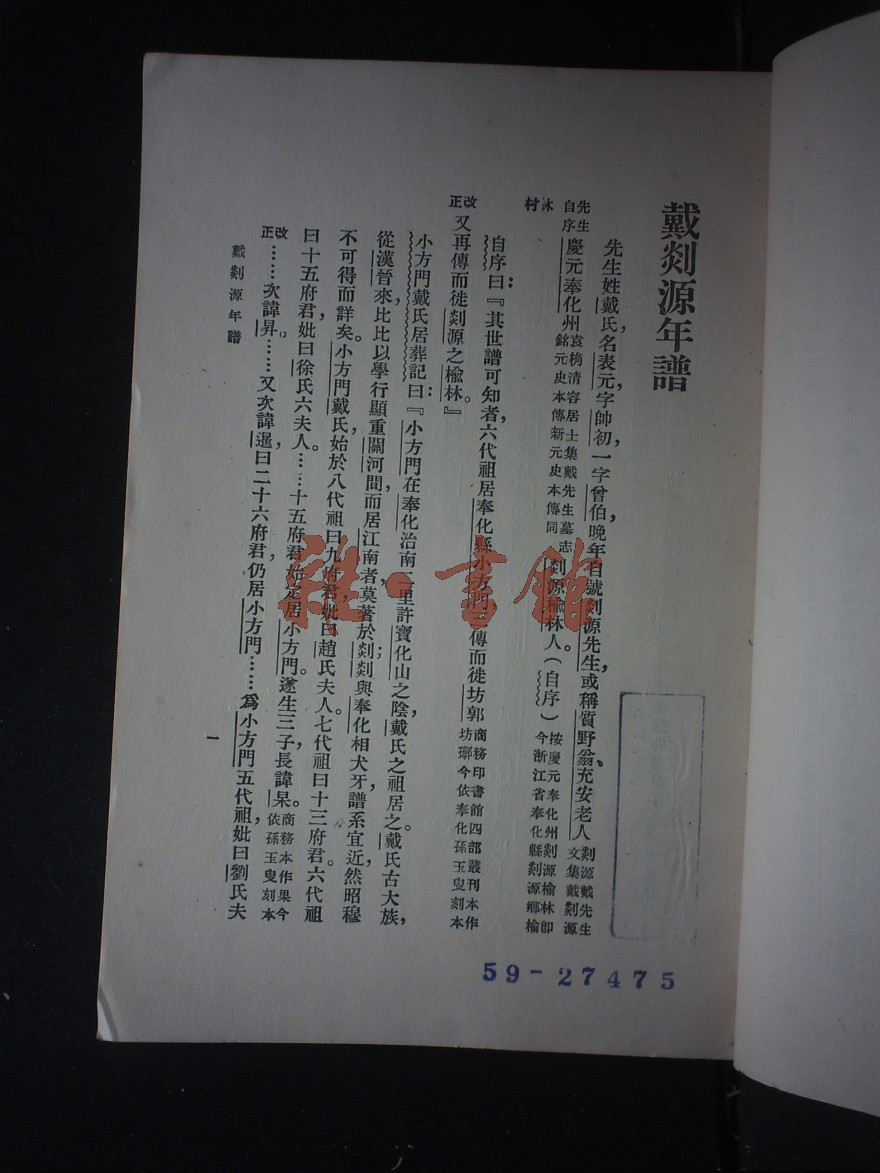 戴剡源年譜
先生姓戴氏，名表元，字帥初，一字曾伯，晚年自號剡源先生，或稱質野翁、充安老人剡源戴先生文集戴剡源
先生自序慶元奉化州袁桷清容居士集戴先生墓志銘元史本傳新元史本傳同剡源榆林人（自序）按慶元奉化州剡源榆林卽今浙江省奉化縣剡源鄉榆
林村
自序曰：『其世譜可知者，六代祖居奉化縣小方門三傳而徙坊郭商務印書館四部叢刊本作坊瑯今依奉化孫玉叟刻本
改正又再傳而徙剡源之榆林。』
小方門戴氏居葬記曰：『小方門在奉化治南二里許寶化山之陰，戴氏之祖居之。戴氏古大族，
從漢晉來比比以學行顯重關河間而居江南者莫著於剡；剡與奉化相犬牙，譜系宜近然昭穆
不可得而詳矣。小方門戴氏始於八代祖曰九府君妣曰趙氏夫人。七代祖曰十三府君。六代祖
曰十五府君妣曰徐氏六夫人。……十五府君始定居小方門。遂生三子，長諱杲。商務本作果今依孫玉叟刻本
改正……次諱昇。……又次諱暹，曰二十六府君，仍居小方門……爲小方門五代祖，妣曰劉氏夫
戴剡源年譜
一
59-27475
雜·書館